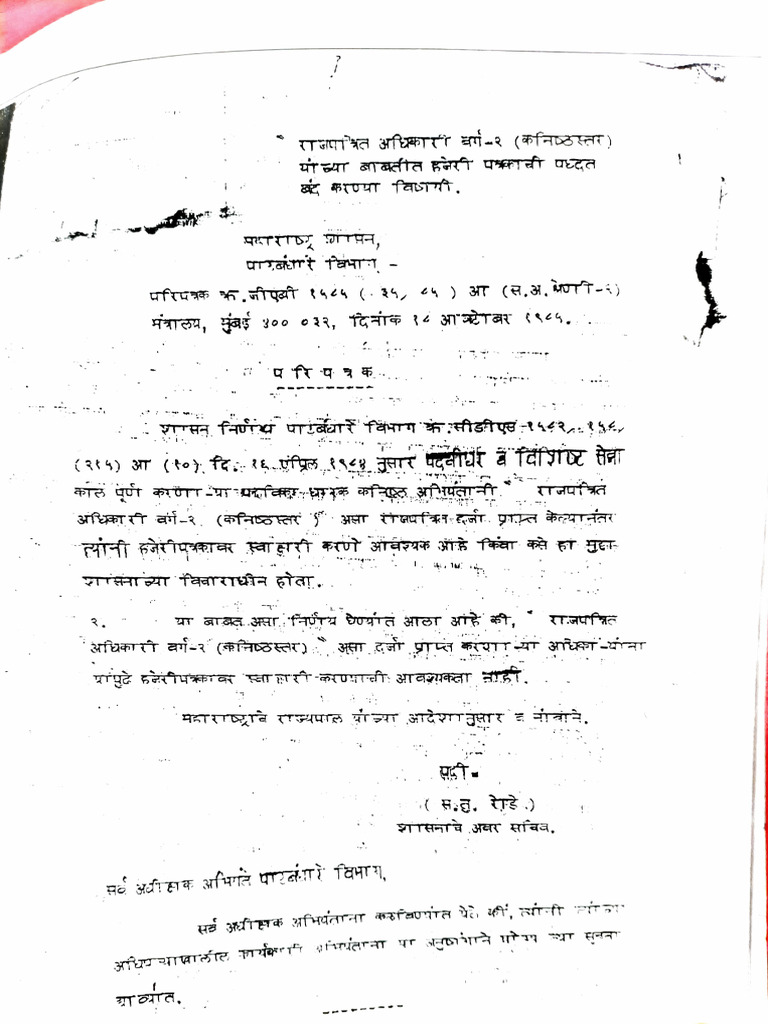 " राजपत्रित अधिकारी वर्ग-२ (कनिष्ठस्तर)
यांच्या बाबतीत हजेरी पत्रकाची पध्दत
बंद करण्या विषयी.
महाराष्ट्र शासन,
पाटबंधारे विभाग -
परिपत्रक क्र.जीएबी १५८५ ( ३५/ ८५ ) आ (स.अ.श्रेणी-२)
मंत्रालय, मुंबई ४०० ०३२, दिनांक १८ आक्टोबर १९८५.
प रि प त्र क
शासन निर्णय पाटबंधारे विभाग क्र.
(२१५) आ (१०) दि. १६ एप्रिल १९८४ नुसार पदवीधर व विशिष्ट सेवा
काल पूर्ण करणा-या पदविका धारक कनिष्ठ अभियंतानी " राजपत्रित
अधिकारी वर्ग-२ (कनिष्ठस्तर )" असा राजपत्रित दर्जा प्राप्त केल्यानंतर
त्यांनी हजेरीपत्रकावर स्वाहारी करणे आवश्यक आहे किंवा कसे हा मुद्दा
शासनाच्या विचाराधीन होता.
२. या बाबत असा निर्णय घेण्यांत आला आहे की, " राजपत्रित
अधिकारी वर्ग-२ (कनिष्ठस्तर) " असा दर्जा प्राप्त करणा-या अधिका-यांना
यापुढे हजेरीपत्रकावर स्वाहारी करण्याची आवश्यकता नाही.
महाराष्ट्राचे राज्यपाल यांच्या आदेशानुसार व नांवाने.
सही-
( स.तु. रोडे.)
शासनाचे अवर सचिव.
सर्व अधीक्षक अभियंते पाटबंधारे विभाग,
सर्व अधीक्षक अभियंताना कळविण्यांत येते की, त्यांनी त्यांच्या
अधिपत्याखालील कार्यकारी अभियंताना या अनुषंगाने योग्य त्या सूचना
द्याव्यांत.